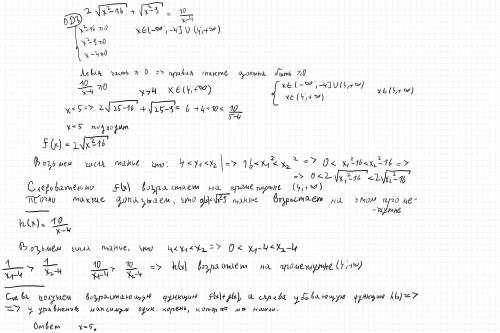 2√(x²-16) + √(x²-9) = 10/(x-4)
ОДЗ
{ x²-16 ≥ 0
x²-9 ≥ 0
x-4 ≠ 0
x∈(-∞, -4]∪(4,+∞)
Левая часть ≥ 0 => правая тоже должна быть ≥0
10/(x-4) ≥ 0 x>4 x∈(4,+∞) { x∈(-∞, -4]∪(4,+∞)
x∈(4,+∞) x∈(4,+∞)
x=5 => 2√(25-16) + √(25-9) = 6+4=10 = 10/(5-4)
x=5 подходит
f(x) = 2√(x²-16)
Возьмем числа такие что: 4<x₁<x₂ | => 16<x₁²<x₂² => 0<x₁²-16<x₂²-16 =>
=> 0<2√(x₁²-16) <2√(x₂²-16)
Следовательно f(x) возрастает на промежутке (4,+∞)
Точно также доказываем, что g(x)=√(x²-9) также возрастает на этом проме-
жутке
h(x) = 10/(x-4)
Возьмем числа такие, что 4<x₁<x₂ => 0<x₁-4<x₂-4
1/(x₁-4) > 1/(x₂-4) 10/(x₁-4) > 10/(x₂-4) => h(x) возрастает на промежутке (4,+∞)
Слева получаем возрастающую функцию f(x)+g(x), а справа убывающую функцию h(x) =>
=> у уравнения максимум один корень, который мы нашли.
Ответ x=5.